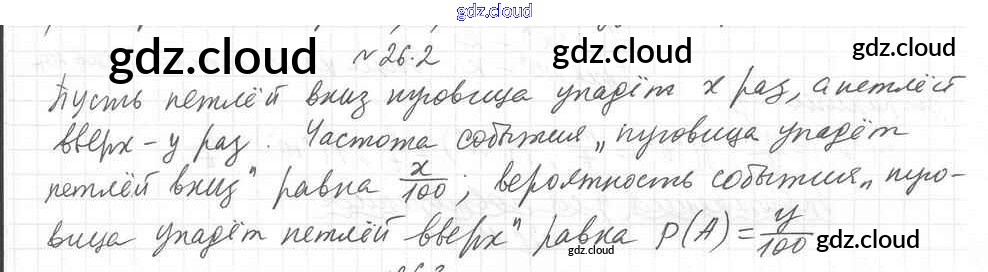 gdz.cloud
gdz.cloud №26.2 gdz.cloud
Пусть петлёй вниз пуговица упадёт x раз, а петлёй
вверх - y раз. Частота события „пуговица упадёт
петлёй вниз" равна x/100; вероятность события „пуго-
вица упадёт петлёй вверх" равна P(A) = y/100 gdz.cloud
gdz.cloud